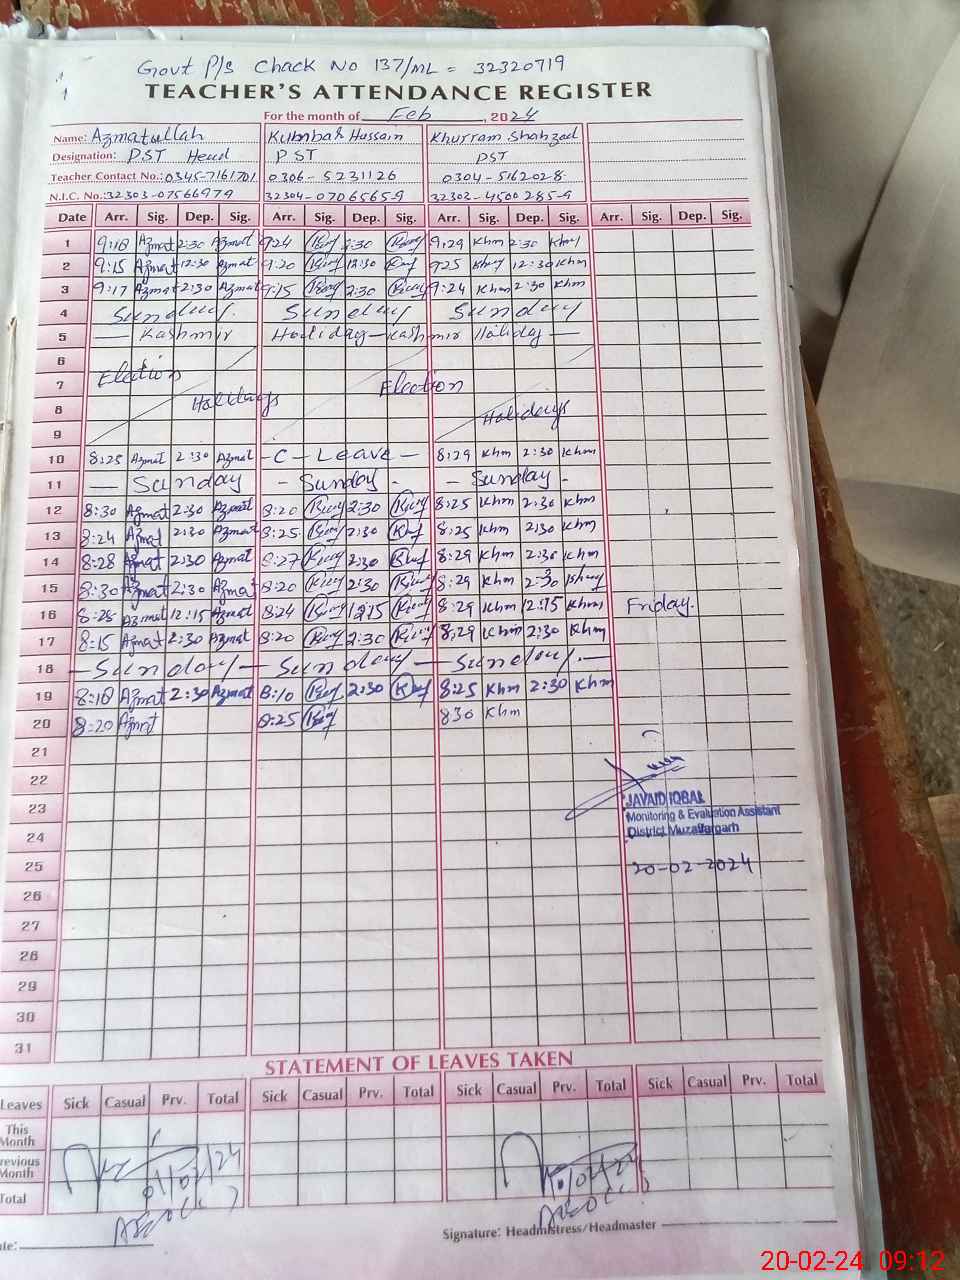 Govt P/S Chack No 137/ML = 32320719
TEACHER'S ATTENDANCE REGISTER
For the month of Feb, 2024
Name: Azmatullah Kumbar Hussain Khurram Shahzad
Designation: PST Head PST PST
Teacher Contact No.: 0345-7161701 0306-5231126 0304-5162028
N.I.C. No. 32303-07566979 32304-0706565-9 32302-4500285-9
Date Arr. Sig. Dep. Sig. Arr. Sig. Dep. Sig. Arr. Sig. Dep. Sig. Arr. Sig. Dep. Sig.
1 9:18 Azmat 2:30 Azmat 9:24 2:30 9:29 Khm 2:30 Khm
2 9:15 Azmat 12:30 Azmat 9:20 12:30 925 Khm 12:30 Khm
3 9:17 Azmat 2:30 Azmat 9:15 2:30 9:24 Khm 2:30 Khm
4 Sunday. Sunday Sunday
5 — Kashmir Holiday — Kashmir Holiday —
6
7 Election Election
8 Holidays Holidays
9
10 8:25 Azmat 2:30 Azmat - C - Leave - 8:29 Khm 2:30 Khm
11 — Sunday - Sunday - - Sunday -
12 8:30 Azmat 2:30 Azmat 8:20 2:30 8:25 Khm 2:30 Khm
13 8:24 Azmat 2:30 Azmat 8:25 2:30 8:25 Khm 2:30 Khm
14 8:28 Azmat 2:30 Azmat 8:27 2:30 8:29 Khm 2:30 Khm
15 8:30 Azmat 2:30 Azmat 8:20 2:30 8:29 Khm 2:30
16 8:25 Azmat 12:15 Azmat 8:24 12:15 8:29 Khm 12:15 Khm Friday.
17 8:15 Azmat 2:30 Azmat 8:20 2:30 8:29 Khm 2:30 Khm
18 — Sunday — Sunday — Sunday. —
19 8:18 Azmat 2:30 Azmat 8:10 2:30 8:25 Khm 2:30 Khm
20 8:20 Azmat 8:25 830 Khm
21
22
23 JAVAID IQBAL
Monitoring & Evaluation Assistant
24 District Muzaffargarh
25 20-02-2024
26
27
28
29
30
31
STATEMENT OF LEAVES TAKEN
Leaves Sick Casual Prv. Total Sick Casual Prv. Total Sick Casual Prv. Total Sick Casual Prv. Total
This Month
revious Month
Total
Signature: Headmistress/Headmaster
20-02-24 09:12